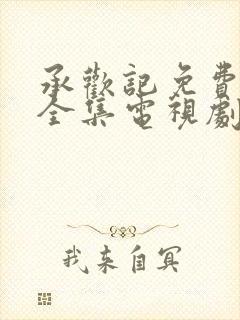 承歡記免費
全集電視劇
我来自冥